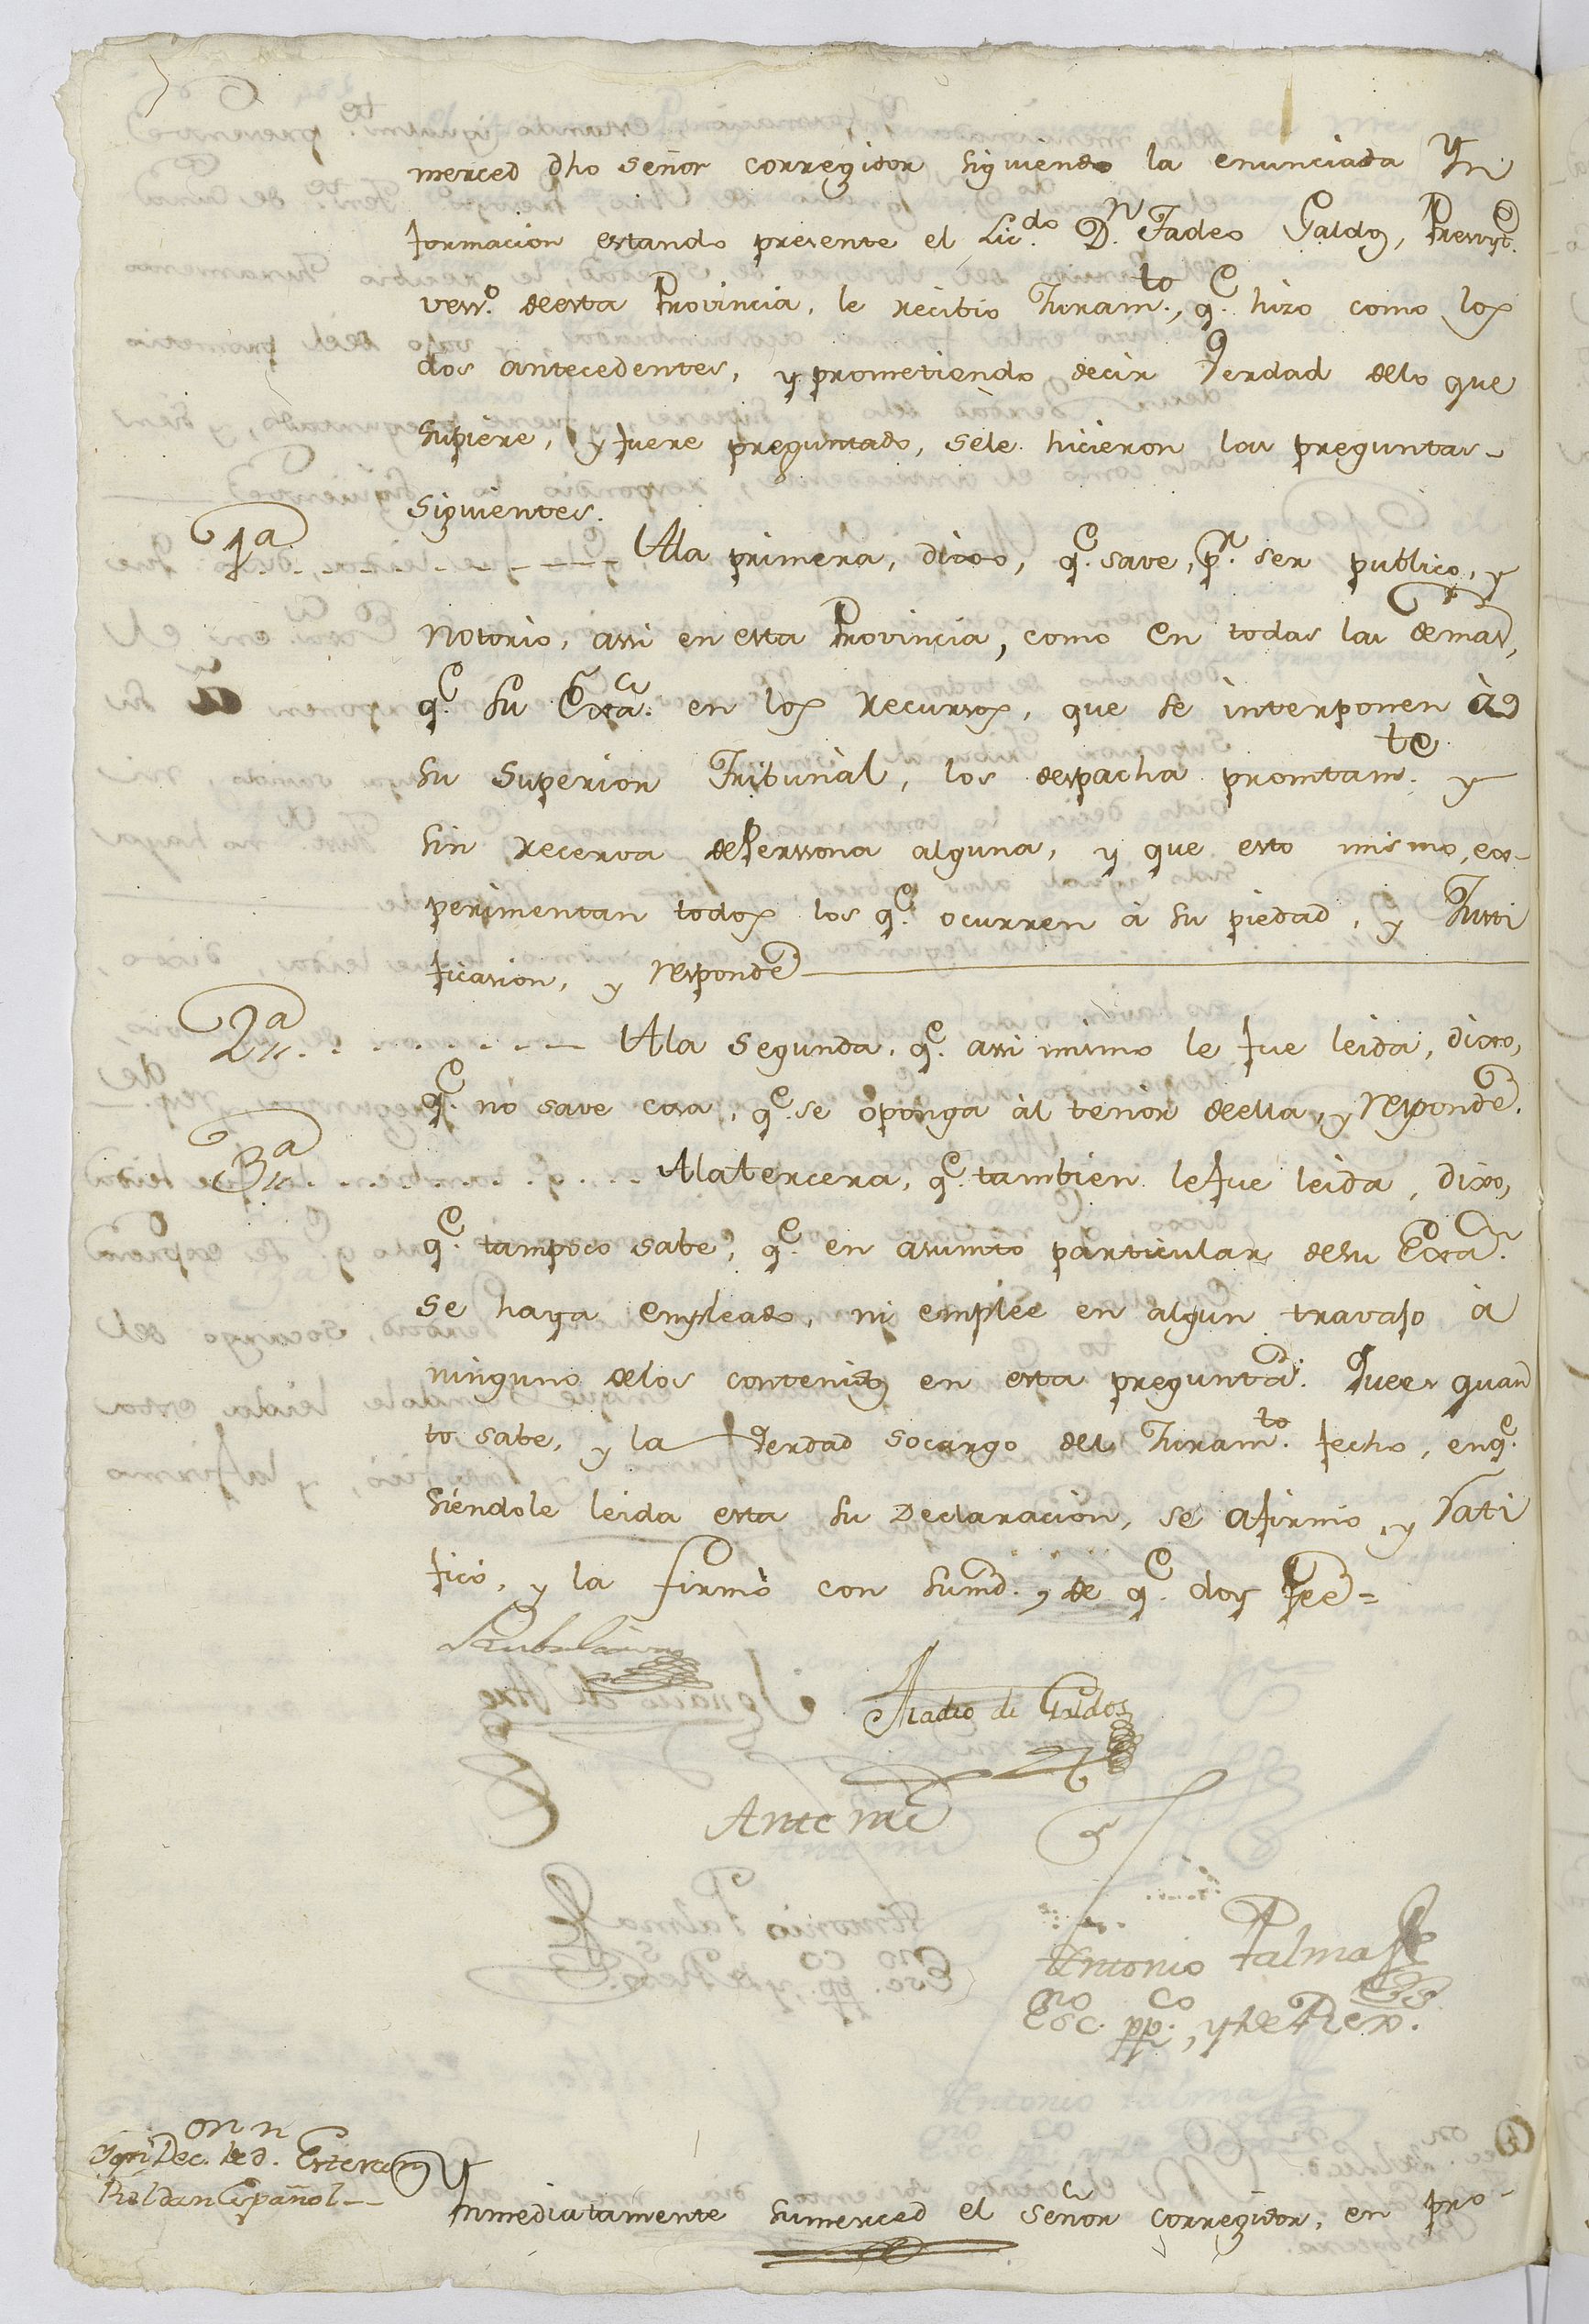 merced dho señor corregidor siguiendo la enunciada Yn
formacion estando presente el Lic.do D.n Tadeo Galdos, Presvyt.o
vess.o de esta Provincia, le recibio Juram.to, q.e hizo como los
dos antecedentes, y prometiendo decir Verdad delo que
supiere, y fuere preguntado, sele hicieron las preguntas
siguientes.
1.a Ala primera, dixo, q.e save, p.r ser publico, y
notorio, assi en esta Provincia, como en todas las demas,
q.e su Exa. en los recursos, que se interponen à
su superior Tribunàl, los despacha promtam.te y
sin recerva dePerssona alguna, y que esto mismo, ex-
perimentan todos los q.e ocurren à su piedad, y Justi
ficasion, y responde
2.a Ala segunda, q.e assi mismo le fue leida, dixo,
q.e no save cosa, q.e se oponga àl tenòr deella, y responde.
3.a Alatercera, q.e tambien lefue leida, dixo,
q.e tampoco sabe, q.e en asumto particular desu Exa.
se haya empleado, ni emplée en algun travajo à
ninguno delos contenidos en esta pregunta. Quees quan
to sabe, y la Verdad socargo del Juram.to fecho, enq.e
siéndole leida esta su Declaracion, se afirmo, y rati
ficó, y la firmò con sumd. de q.e doy fee =
Tadeo de Galdos
Ante mi
Antonio Palma
Esc.no pp.co, y de Rexo.
Dec.on
Roldan Español
Ynmediatamente sumerced el señor corregidor, en pro-